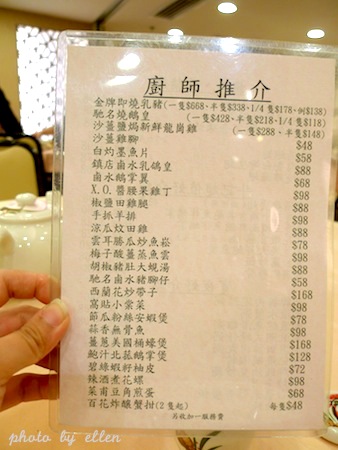 廚師推介
金牌即燒乳豬(一隻$668、半隻$338、1/4隻$178、例$138)
馳名燒鵝皇 (一隻$428、半隻$218、1/4隻$118)
沙薑鹽焗新鮮龍崗雞 (一隻$288、半隻$148)
沙薑雞腳 $48
白灼墨魚片 $58
鎮店鹵水乳鴿皇 $88
鹵水鵝掌翼 $68
X.O.醬腰果雞丁 $98
椒鹽田雞腿 $88
手抓羊排 $98
涼瓜炆田雞 $88
雲耳勝瓜炒魚崧 $78
梅子酸薑蒸魚雲 $98
胡椒豬肚大蜆湯 $88
馳名鹵水豬腳仔 $58
西蘭花炒帶子 $168
窩貼小棠菜 $98
節瓜粉絲安蝦煲 $78
蒜香無骨魚 $98
薑蔥美國桶蠔煲 $168
鮑汁北菇鵝掌煲 $128
碧綠蝦籽柚皮 $72
辣酒煮花螺 $98
菜甫豆角煎蛋 $68
百花炸釀蟹拑(2隻起) 每隻$48
另收加一服務費
photo by ellen